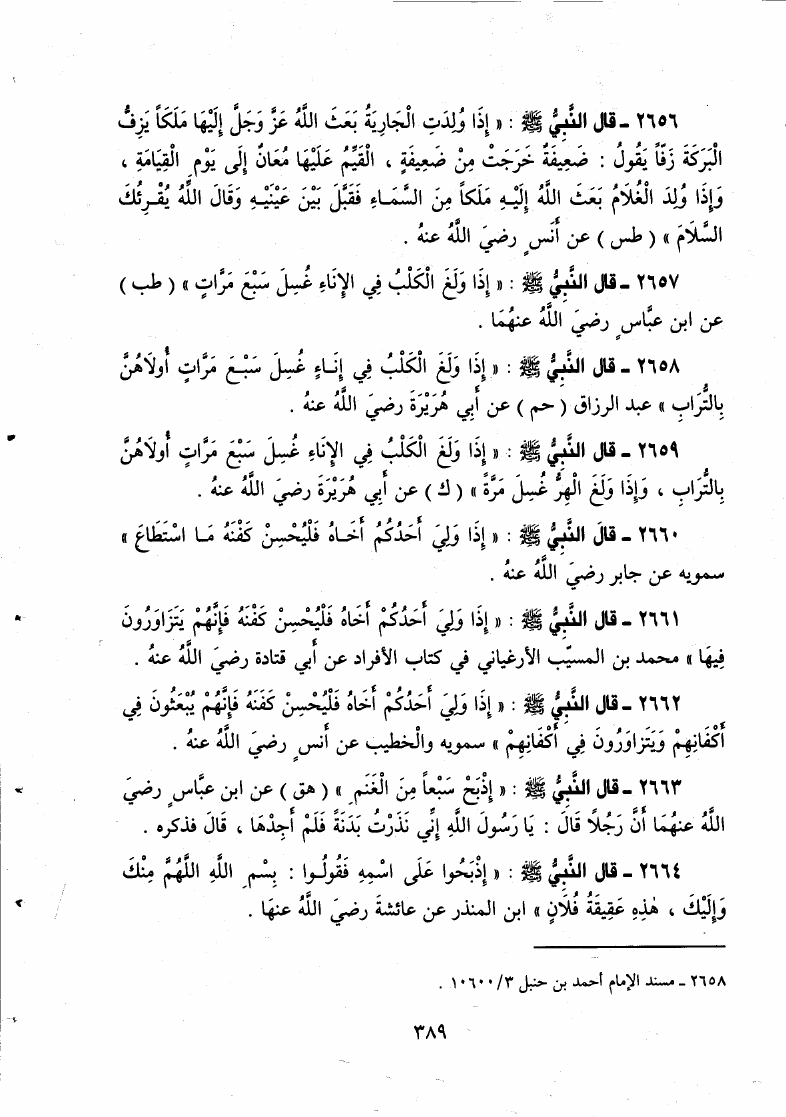 ٢٦٥٦ ـ قال النَّبِيُّ ﷺ : « إِذَا وُلِدَتِ الْجَارِيَةُ بَعَثَ اللَّهُ عَزَّ وَجَلَّ إِلَيْهَا مَلَكاً يَزِفُّ
الْبَرَكَةَ زَفّاً يَقُولُ : ضَعِيفَةٌ خَرَجَتْ مِنْ ضَعِيفَةٍ ، الْقَيِّمُ عَلَيْهَا مُعَانٌ إِلَى يَوْمِ الْقِيَامَةِ ،
وَإِذَا وُلِدَ الْغُلَامُ بَعَثَ اللَّهُ إِلَيْهِ مَلَكاً مِنَ السَّمَاءِ فَقَبَّلَ بَيْنَ عَيْنَيْهِ وَقَالَ اللَّهُ يُقْرِئُكَ
السَّلَامَ » ( طس ) عن أَنَسٍ رضيَ اللَّهُ عنهُ .
٢٦٥٧ ـ قال النَّبِيُّ ﷺ : « إِذَا وَلَغَ الْكَلْبُ فِي الإِنَاءِ غُسِلَ سَبْعَ مَرَّاتٍ » ( طب )
عن ابن عبَّاسٍ رضيَ اللَّهُ عنهُمَا .
٢٦٥٨ ـ قال النَّبِيُّ ﷺ : « إِذَا وَلَغَ الْكَلْبُ فِي إِنَاءٍ غُسِلَ سَبْعَ مَرَّاتٍ أُولَاهُنَّ
بِالتُّرَابِ » عبد الرزاق ( حم ) عن أَبِي هُرَيْرَةَ رضيَ اللَّهُ عنهُ .
٢٦٥٩ ـ قال النَّبِيُّ ﷺ : « إِذَا وَلَغَ الْكَلْبُ فِي الإِنَاءِ غُسِلَ سَبْعَ مَرَّاتٍ أُولَاهُنَّ
بِالتُّرَابِ ، وَإِذَا وَلَغَ الْهِرُّ غُسِلَ مَرَّةً » ( ك ) عن أَبِي هُرَيْرَةَ رضيَ اللَّهُ عنهُ .
٢٦٦٠ ـ قالَ النَّبِيُّ ﷺ : « إِذَا وَلِيَ أَحَدُكُمْ أَخَاهُ فَلْيُحْسِنْ كَفَنَهُ مَا اسْتَطَاعَ »
سمويه عن جابر رضيَ اللَّهُ عنهُ .
٢٦٦١ ـ قال النَّبِيُّ ﷺ : « إِذَا وَلِيَ أَحَدُكُمْ أَخَاهُ فَلْيُحْسِنْ كَفَنَهُ فَإِنَّهُمْ يَتَزَاوَرُونَ
فِيهَا » محمد بن المسيّب الأرغياني في كتاب الأفراد عن أَبي قتادة رضيَ اللَّهُ عنهُ .
٢٦٦٢ ـ قال النَّبِيُّ ﷺ : « إِذَا وَلِيَ أَحَدُكُمْ أَخَاهُ فَلْيُحْسِنْ كَفَنَهُ فَإِنَّهُمْ يُبْعَثُونَ فِي
أَكْفَانِهِمْ وَيَتَزَاوَرُونَ فِي أَكْفَانِهِمْ » سمويه والخطيب عن أَنسٍ رضيَ اللَّهُ عنهُ .
٢٦٦٣ ـ قال النَّبِيُّ ﷺ : « إِذْبَحْ سَبْعاً مِنَ الْغَنَمِ » ( هق ) عن ابن عبَّاسٍ رضيَ
اللَّهُ عنهُمَا أَنَّ رَجُلًا قَالَ : يَا رَسُولَ اللَّهِ إِنِّي نَذَرْتُ بَدَنَةً فَلَمْ أَجِدْهَا ، قَالَ فذكره .
٢٦٦٤ ـ قال النَّبِيُّ ﷺ : « إِذْبَحُوا عَلَى اسْمِهِ فَقُولُوا : بِسْمِ اللَّهِ اللَّهُمَّ مِنْكَ
وَإِلَيْكَ ، هٰذِهِ عَقِيقَةُ فُلَانٍ » ابن المنذر عن عائشةَ رضيَ اللَّهُ عنهَا .
٢٦٥٨ ـ مسند الإمام أحمد بن حنبل ١٠٦٠٠/٣ .
٣٨٩